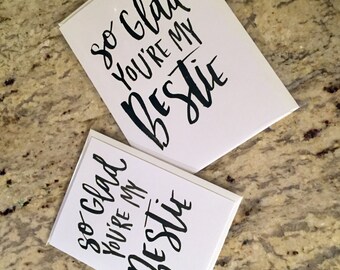 So Glad
You're My
Bestie
So Glad
You're My
Bestie